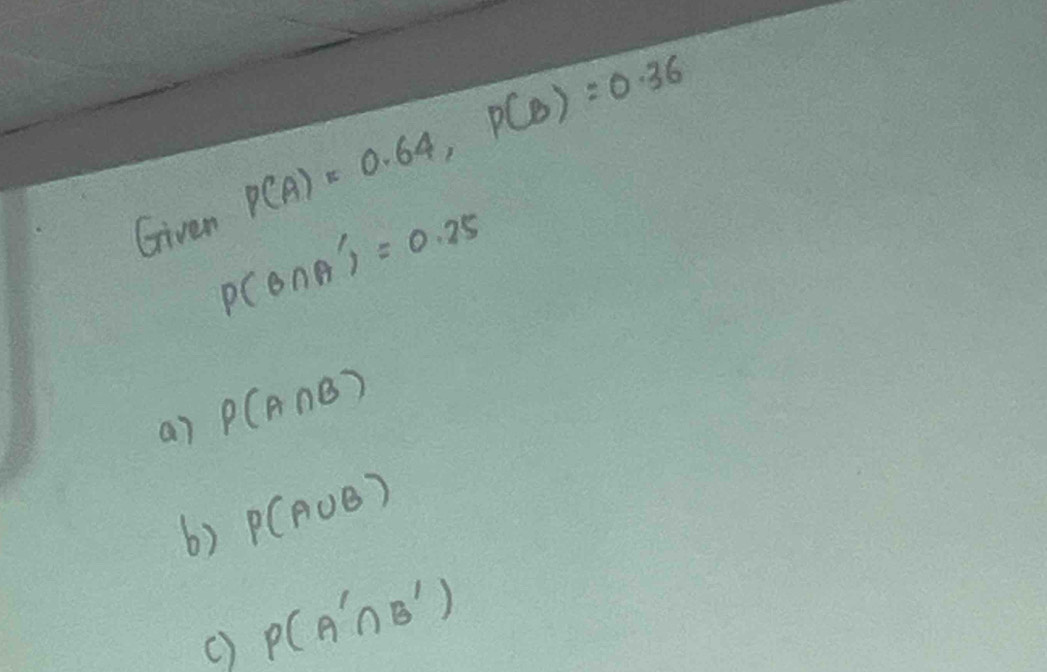 Given P(A) = 0.64, P(B) = 0.36
P(B∩A') = 0.25
a) P(A∩B)
b) P(A∪B)
c) P(A'∩B')